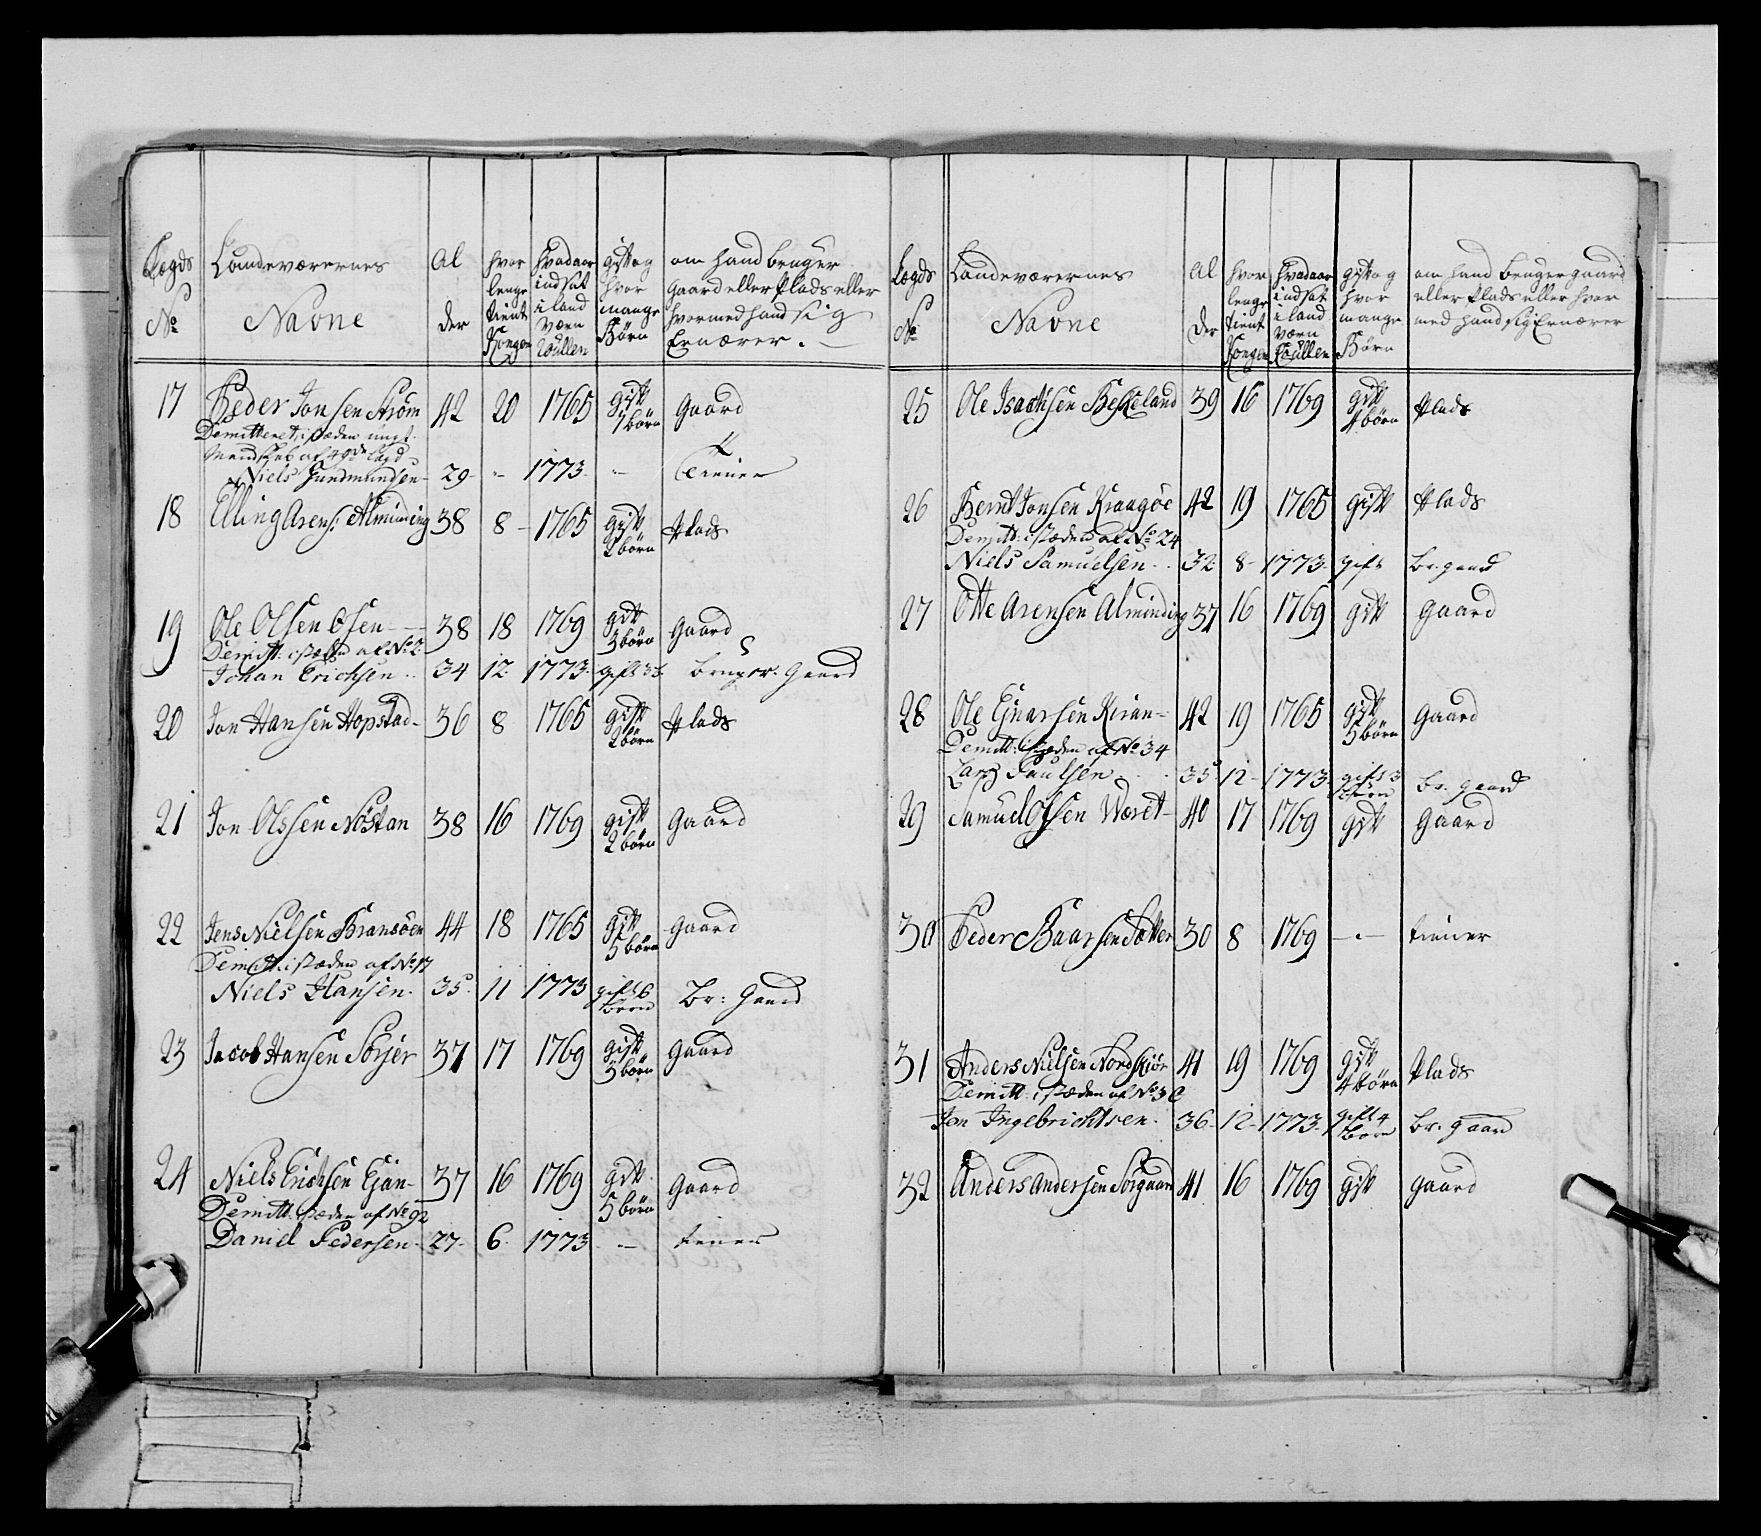 Lægds No | Landeværernes Navne | Al der | hvor lenge tient Kongen | hvad aar indsat i land værn Roullen | gift og hvor mange Börn | om hand bruger Gaard eller Plads eller hvormed hand sig Ernærer.
17 | Peder Jonsen Ström | 42 | 20 | 1765 | gift 1 börn | Gaard
Demitteret, i stæden
Mandskab af 49de Lægd
Niels Gundmundsen | 29 | - | 1773 | - | Tiener
18 | Elling Arens: Alminding | 38 | 8 | 1765 | gift 2 börn | Plads
19 | Ole Olsen Osen | 38 | 18 | 1769 | gift 3 börn | Gaard
Demitt: i stæden af No 2
Johan Erichsen | 34 | 12 | 1773 | gift 3 b. | bruger Gaard
20 | Jon Hansen Hopstad | 36 | 8 | 1765 | gift 2 börn | Plads
21 | Jon Olssen Nöstan | 38 | 16 | 1769 | gift 2 börn | Gaard
22 | Jens Nielsen Bransöen | 44 | 18 | 1765 | gift 5 börn | Gaard
Demitt: i stæden af No 17
Niels Hansen | 35 | 11 | 1773 | gift 6 börn | Br: Gaard
23 | Jacob Hansen Sörjer | 37 | 17 | 1769 | gift 3 börn | Gaard
24 | Niels Erichsen Ejan | 37 | 16 | 1769 | gift 5 börn | Gaard
Demitt: i stæden af No 92
Daniel Pedersen | 27 | 6 | 1773 | - | tiener
Lægds No | Landeværernes Navne | Al der | hvor lenge tient Kongen | hvad aar indsat i land værn Roullen | gift og hvor mange Börn | om hand bruger gaard eller Plads eller hvor med hand sig Ernærer
25 | Ole Isachsen Beskeland | 39 | 16 | 1769 | gift 4 börn | Plads
26 | Bernt Jonsen Kraagöe | 42 | 19 | 1765 | gift | Plads
Demitt: i stæden af No 24
Niels Samuelsen | 32 | 8 | 1773 | gift | br. gaard
27 | Otte Arensen Alminding | 37 | 16 | 1769 | gift | Gaard
28 | Ole Ejnarsen Kiran | 42 | 19 | 1765 | gift 5 börn | Gaard
Demitt: i stæden af No 34
Lars Paulsen | 35 | 12 | 1773 | gift 3 börn | br. gaard
29 | Samuel Olsen Wæret | 40 | 17 | 1769 | gift | Gaard
30 | Peder Baarsen Sætter | 30 | 8 | 1769 | - | tiener
31 | Anders Nielsen Nordskiör | 41 | 19 | 1769 | gift 4 börn | Plads
Demitt: i stæden af No 36
Jon Ingebrichtsen | 36 | 12 | 1773 | gift 4 börn | br. gaard
32 | Anders Andersen Sörgaard | 41 | 16 | 1769 | gift | gaard